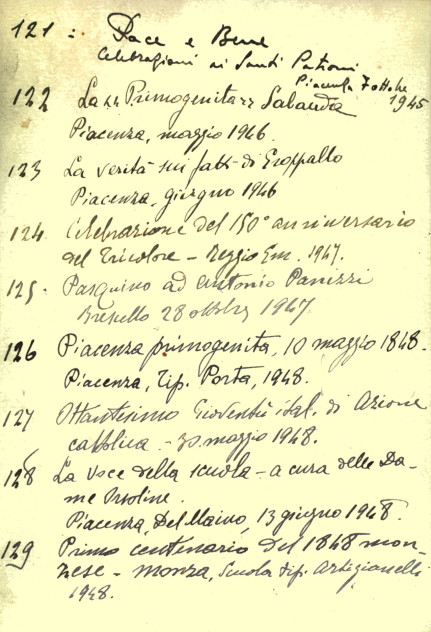 121 : Pace e Bene
Celebrazioni ai Santi Patroni
Piacenza 7 ottobre
1945
122 La "Primogenita" Sabauda
Piacenza, maggio 1946.
123 La verità sui fatti di Groppallo
Piacenza, giugno 1946
124 Celebrazione del 150° anniversario
del Tricolore - Reggio Em. 1947.
125. Pasquino ad Antonio Panizzi
Brescello 28 ottobre 1947.
126 Piacenza primogenita, 10 maggio 1848.
Piacenza, Tip. Porta, 1948.
127 Ottantesimo Gioventù ital. di Azione
cattolica. - 30. maggio 1948.
128 La voce della scuola - a cura delle Da-
me Orsoline.
Piacenza, Del Maino, 13 giugno 1948.
129 Primo centenario del 1848 mon-
zese - Monza, Scuola tip. Artigianelli
1948.